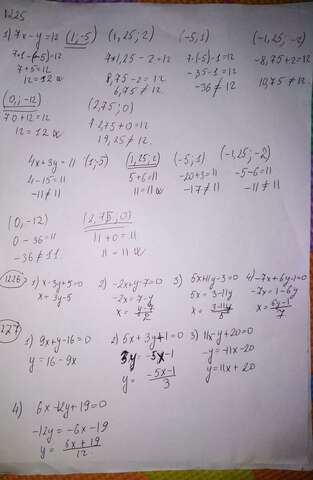 N25
1) 7x-y=12 (1;-5) (1,25; 2) (-5,1) (-1,25; -2)
7*1-(-5)=12 7*1,25-2=12 7·(-5)-1=12 -8,75+2=12
7+5=12 8,75-2=12 -35-1=12 10,75≠12
12=12 6,75≠12 -36≠12
(0; -12) (2,75; 0)
7·0+12=12 7·2,75+0=12
12=12 19,25≠12
4x+3y=11 (1,5) (1,25; 2) (-5,1) (-1,25; -2)
4-15=11 5+6=11 -20+3=11 -5-6=11
-11≠11 11=11 -17≠11 -11≠11
(0, -12) (2,75; 0)
0-36=11 11+0=11
-36≠11 11=11
1226 1) x-3y+5=0 2) -2x+y-7=0 3) 5x+11y-3=0 4) -7x+6y-1=0
x=3y-5 -2x=7-y 5x=3-11y -7x=1-6y
x=\frac{y-7}{2} x=\frac{3-11y}{5} x=\frac{6y-1}{7}
227
1) 9x+y-16=0 2) 5x+3y+1=0 3) 11x-y+20=0
y=16-9x 3y=-5x-1 -y=-11x-20
y=\frac{-5x-1}{3} y=11x+20
4) 6x-12y+19=0
-12y=-6x-19
y=\frac{6x+19}{12}